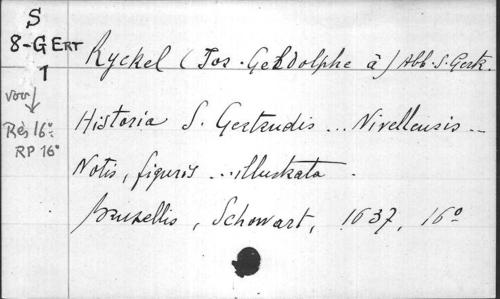 S
8-GERT
1
voir
Rés 16º
RP 16º
Ryckel (Jos. Geldolphe à) Abb. S. Gertr.
Historia S. Gertrudis ... Nivellensis _
Notis, figuris ... illustrata.
Bruxellis, Schovart, 1637, 16º